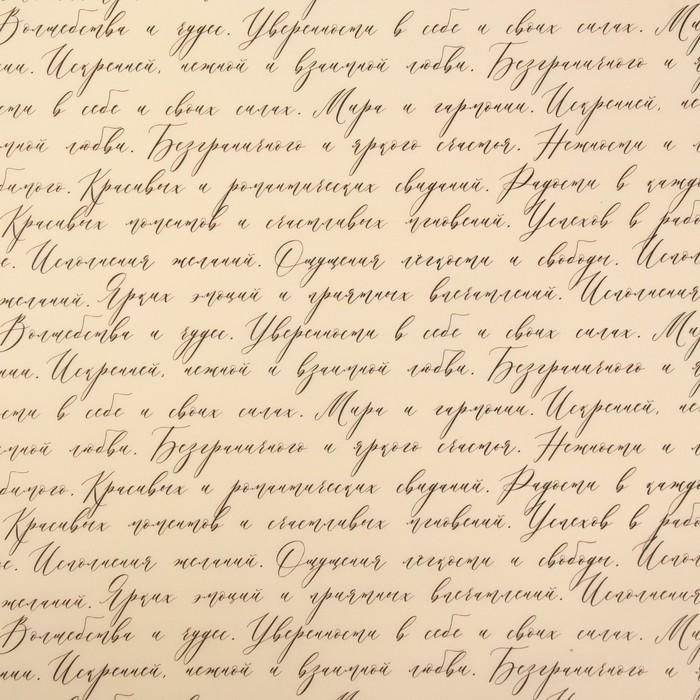 Волшебства и чудес. Уверенности в себе и своих силах. Ми
нии. Искренней, нежной и взаимной любви. Безграничного и я
сти в себе и своих силах. Мира и гармонии. Искренней, не
мной любви. Безграничного и яркого счастья. Нежности и л
бимого. Красивых и романтических свиданий. Радости в кажд
Красивых моментов и счастливых мгновений. Успехов в рабо
с. Исполнения желаний. Ощущения лёгкости и свободы. Испол
желаний. Ярких эмоций и приятных впечатлений. Исполнения
Волшебства и чудес. Уверенности в себе и своих силах. Ми
нии. Искренней, нежной и взаимной любви. Безграничного и я
сти в себе и своих силах. Мира и гармонии. Искренней, не
мной любви. Безграничного и яркого счастья. Нежности и л
бимого. Красивых и романтических свиданий. Радости в кажд
Красивых моментов и счастливых мгновений. Успехов в рабо
с. Исполнения желаний. Ощущения лёгкости и свободы. Испол
желаний. Ярких эмоций и приятных впечатлений. Исполнения
Волшебства и чудес. Уверенности в себе и своих силах. Ми
нии. Искренней, нежной и взаимной любви. Безграничного и я